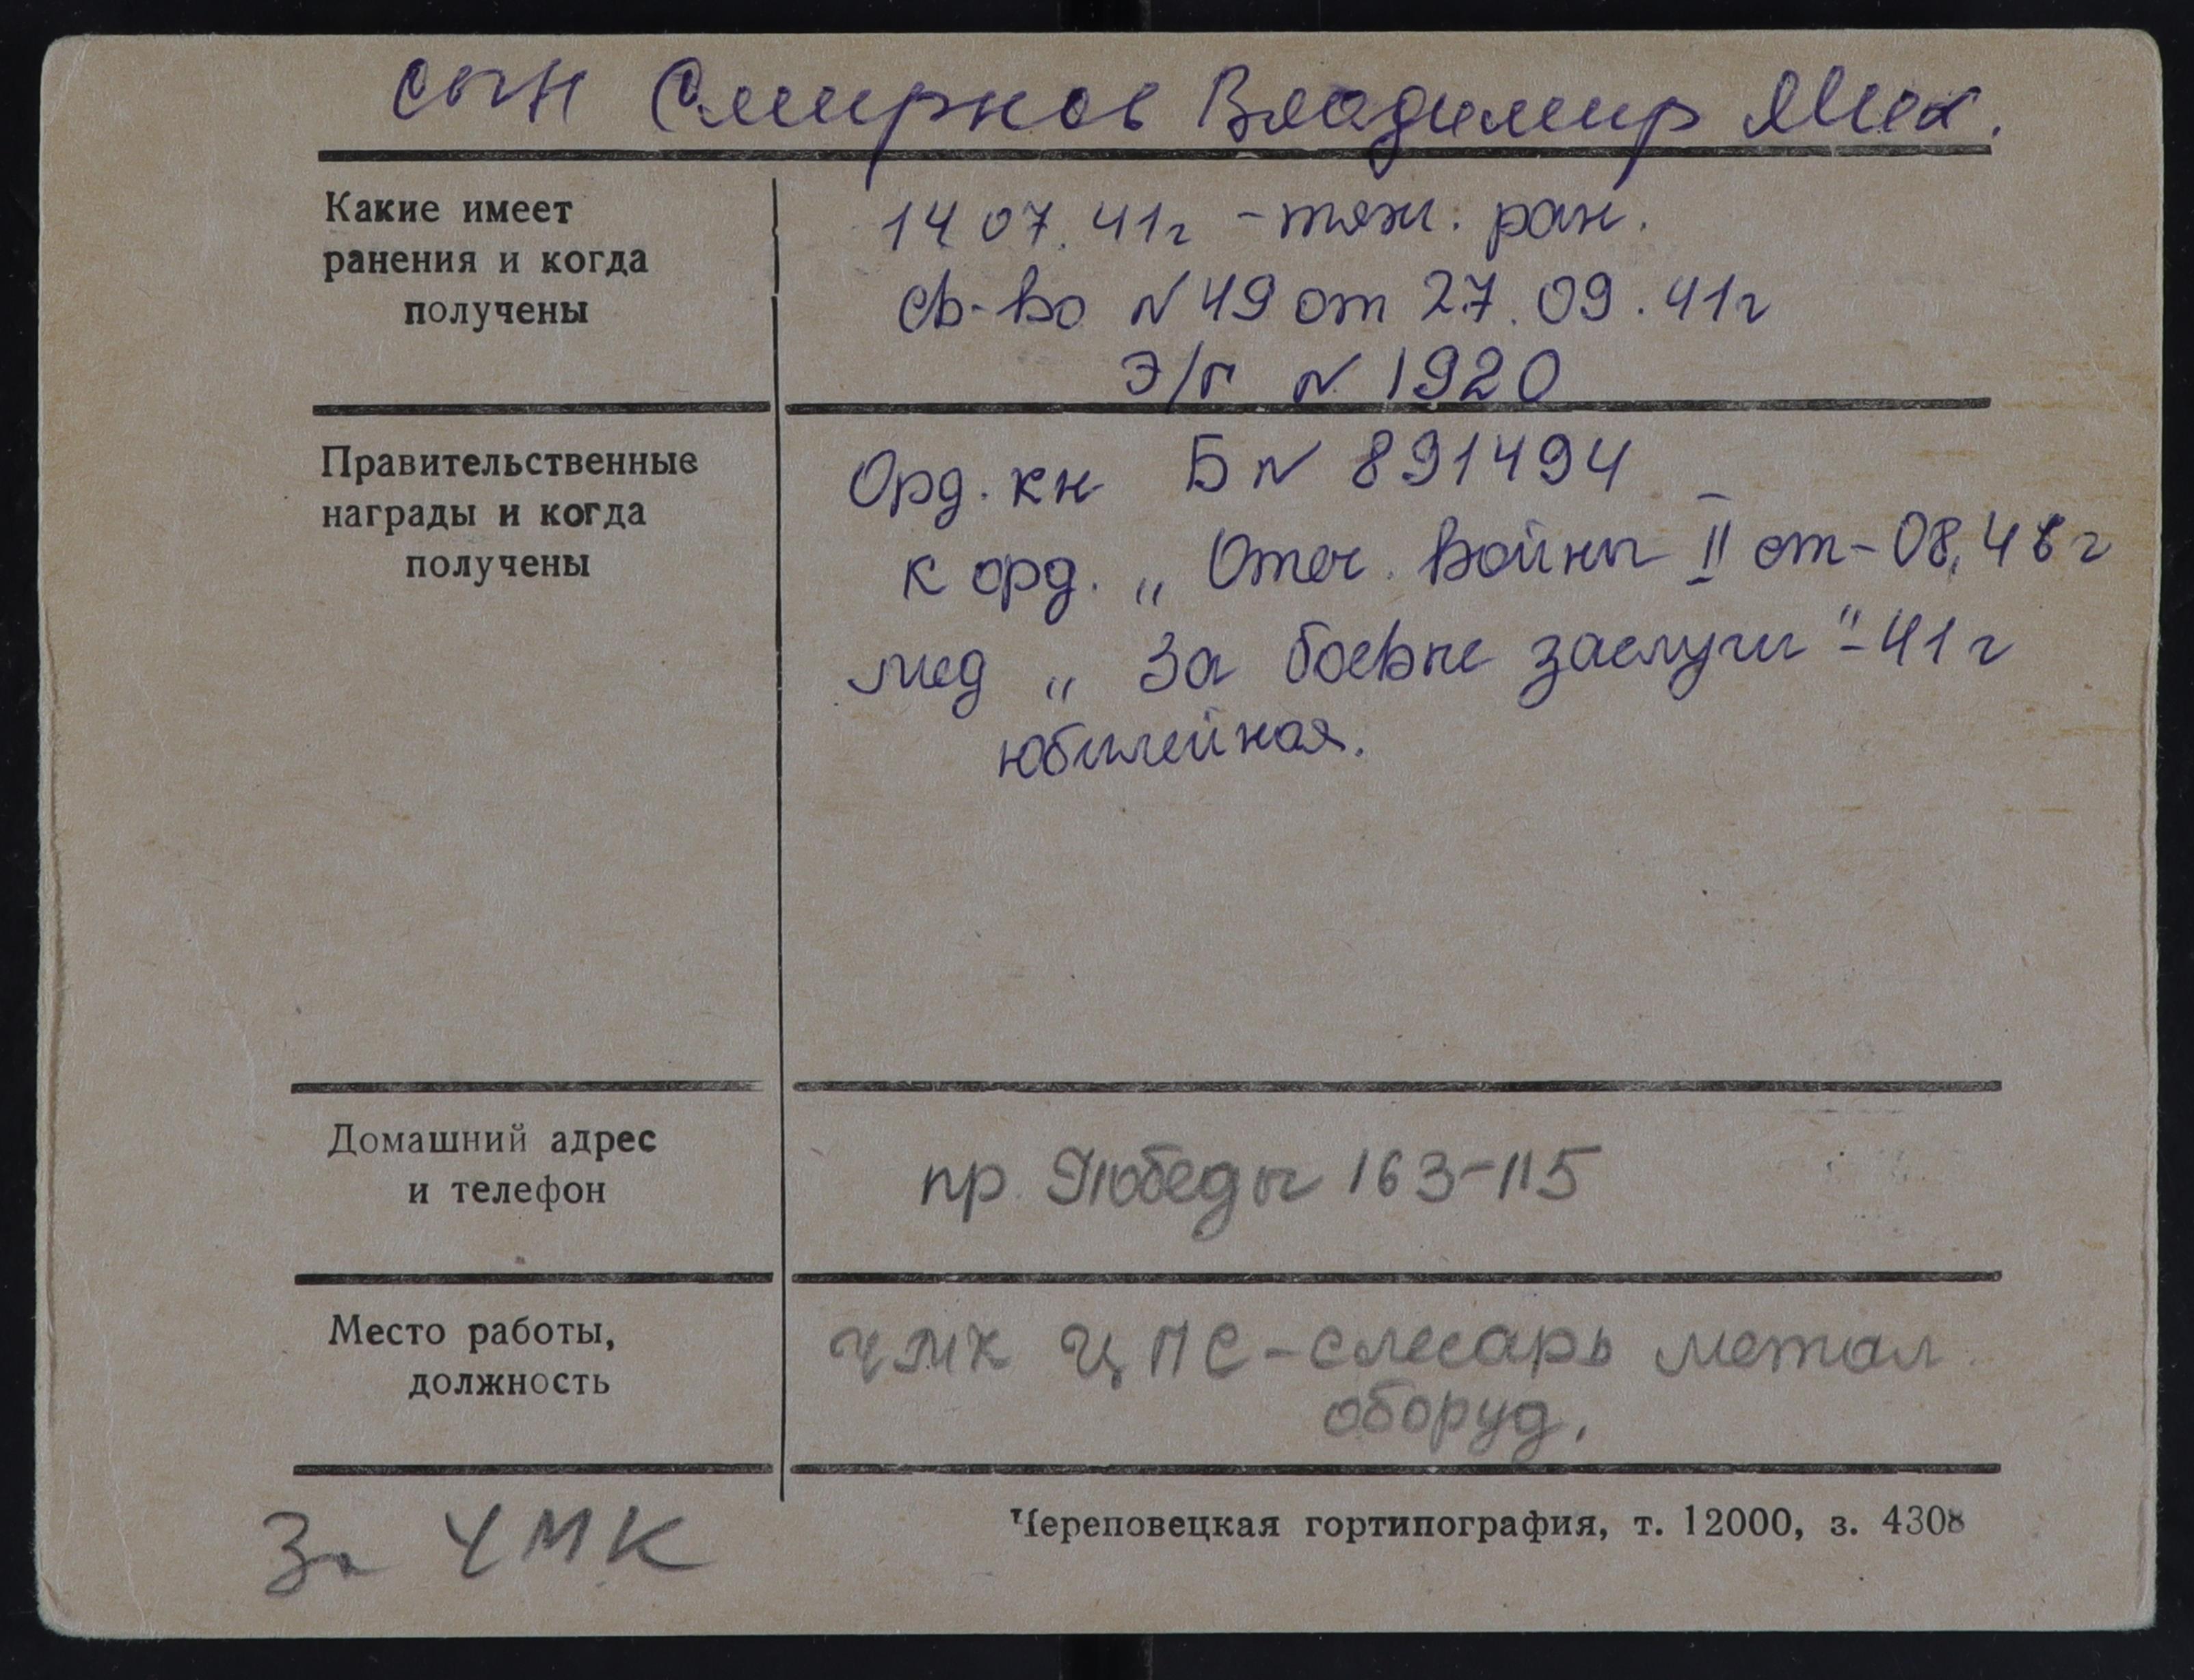 сын Смирнов Владимир Мих.
Какие имеет
ранения и когда
получены
14 07. 41г - тяж. ран.
св-во N 49 от 27. 09. 41г
Э/г N 1920
Правительственные
награды и когда
получены
Орд. кн Б N 891494
к орд. „ Отеч. Войны II ст - 08,
мед „ За боевые заслуги " - 41 г
юбилейная.
Домашний адрес
и телефон
пр. Победы 163-115
Место работы,
должность
ЧМК ЦПС - слесарь метал
оборуд.
За ЧМК
Череповецкая гортипография, т. 12000, з. 4308